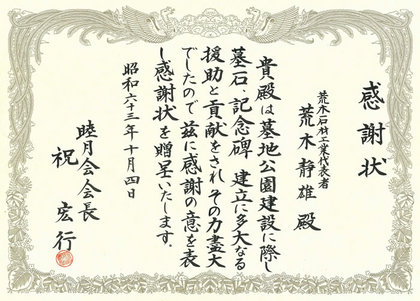 感謝状
荒木石材工業代表者
荒木静雄殿
貴殿は墓地公園建設に際し
墓石、記念碑、建立に多大なる
援助と貢献をされその力盡大
でしたので茲に感謝の意を表
し感謝状を贈呈いたします。
昭和六十三年十月四日
睦月会会長
祝宏行